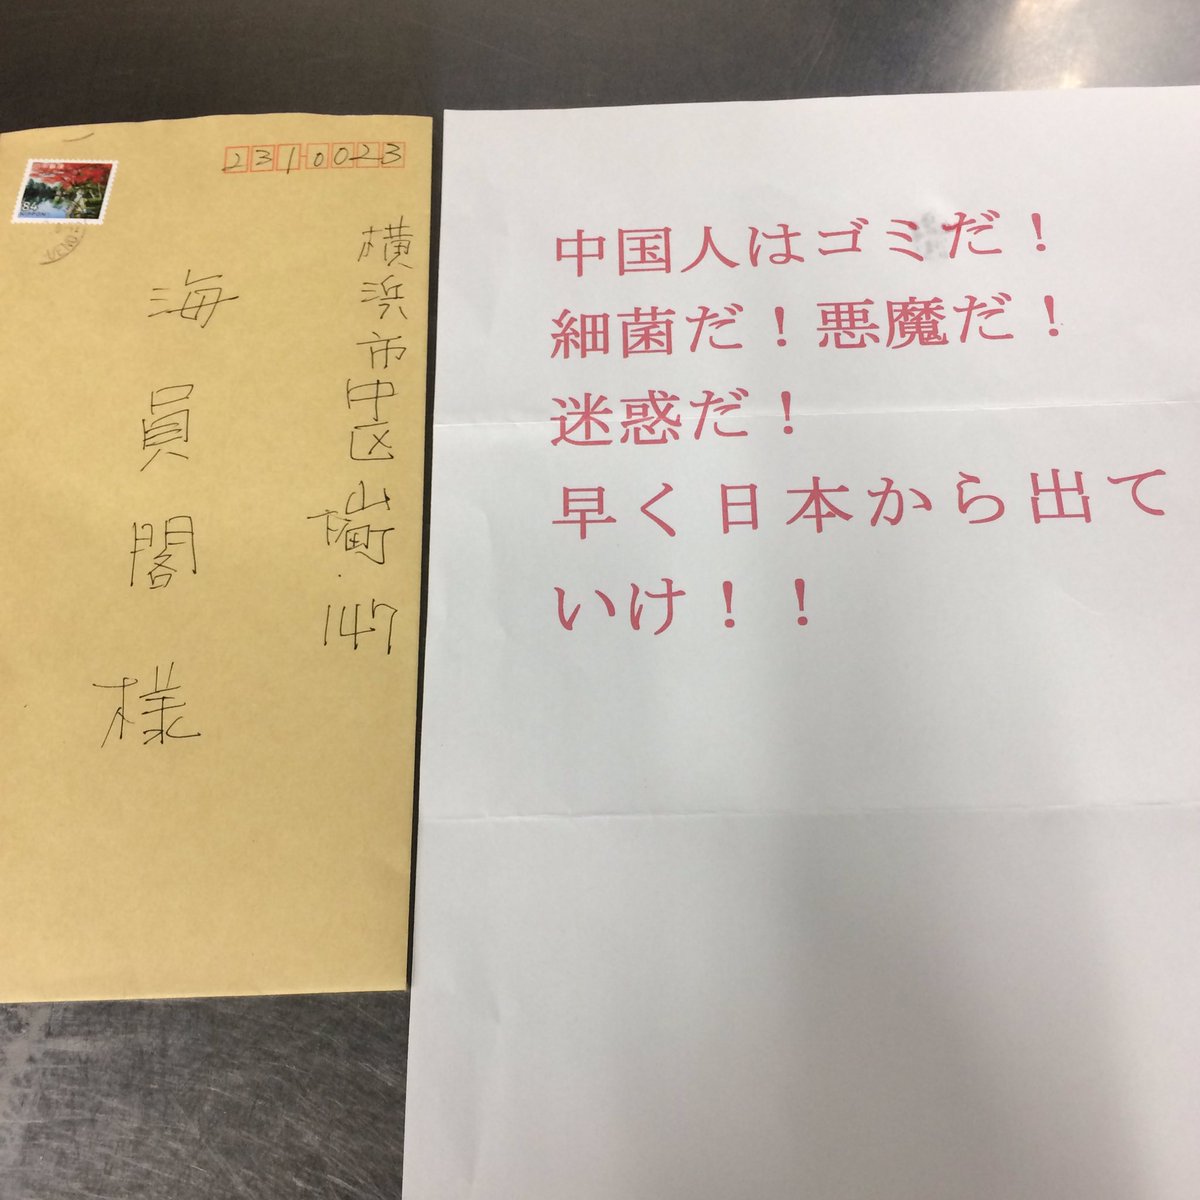 2310023
横浜市中区山下町147
海員閣様
84
NIPPON
中国人はゴミだ！
細菌だ！悪魔だ！
迷惑だ！
早く日本から出て
いけ！！